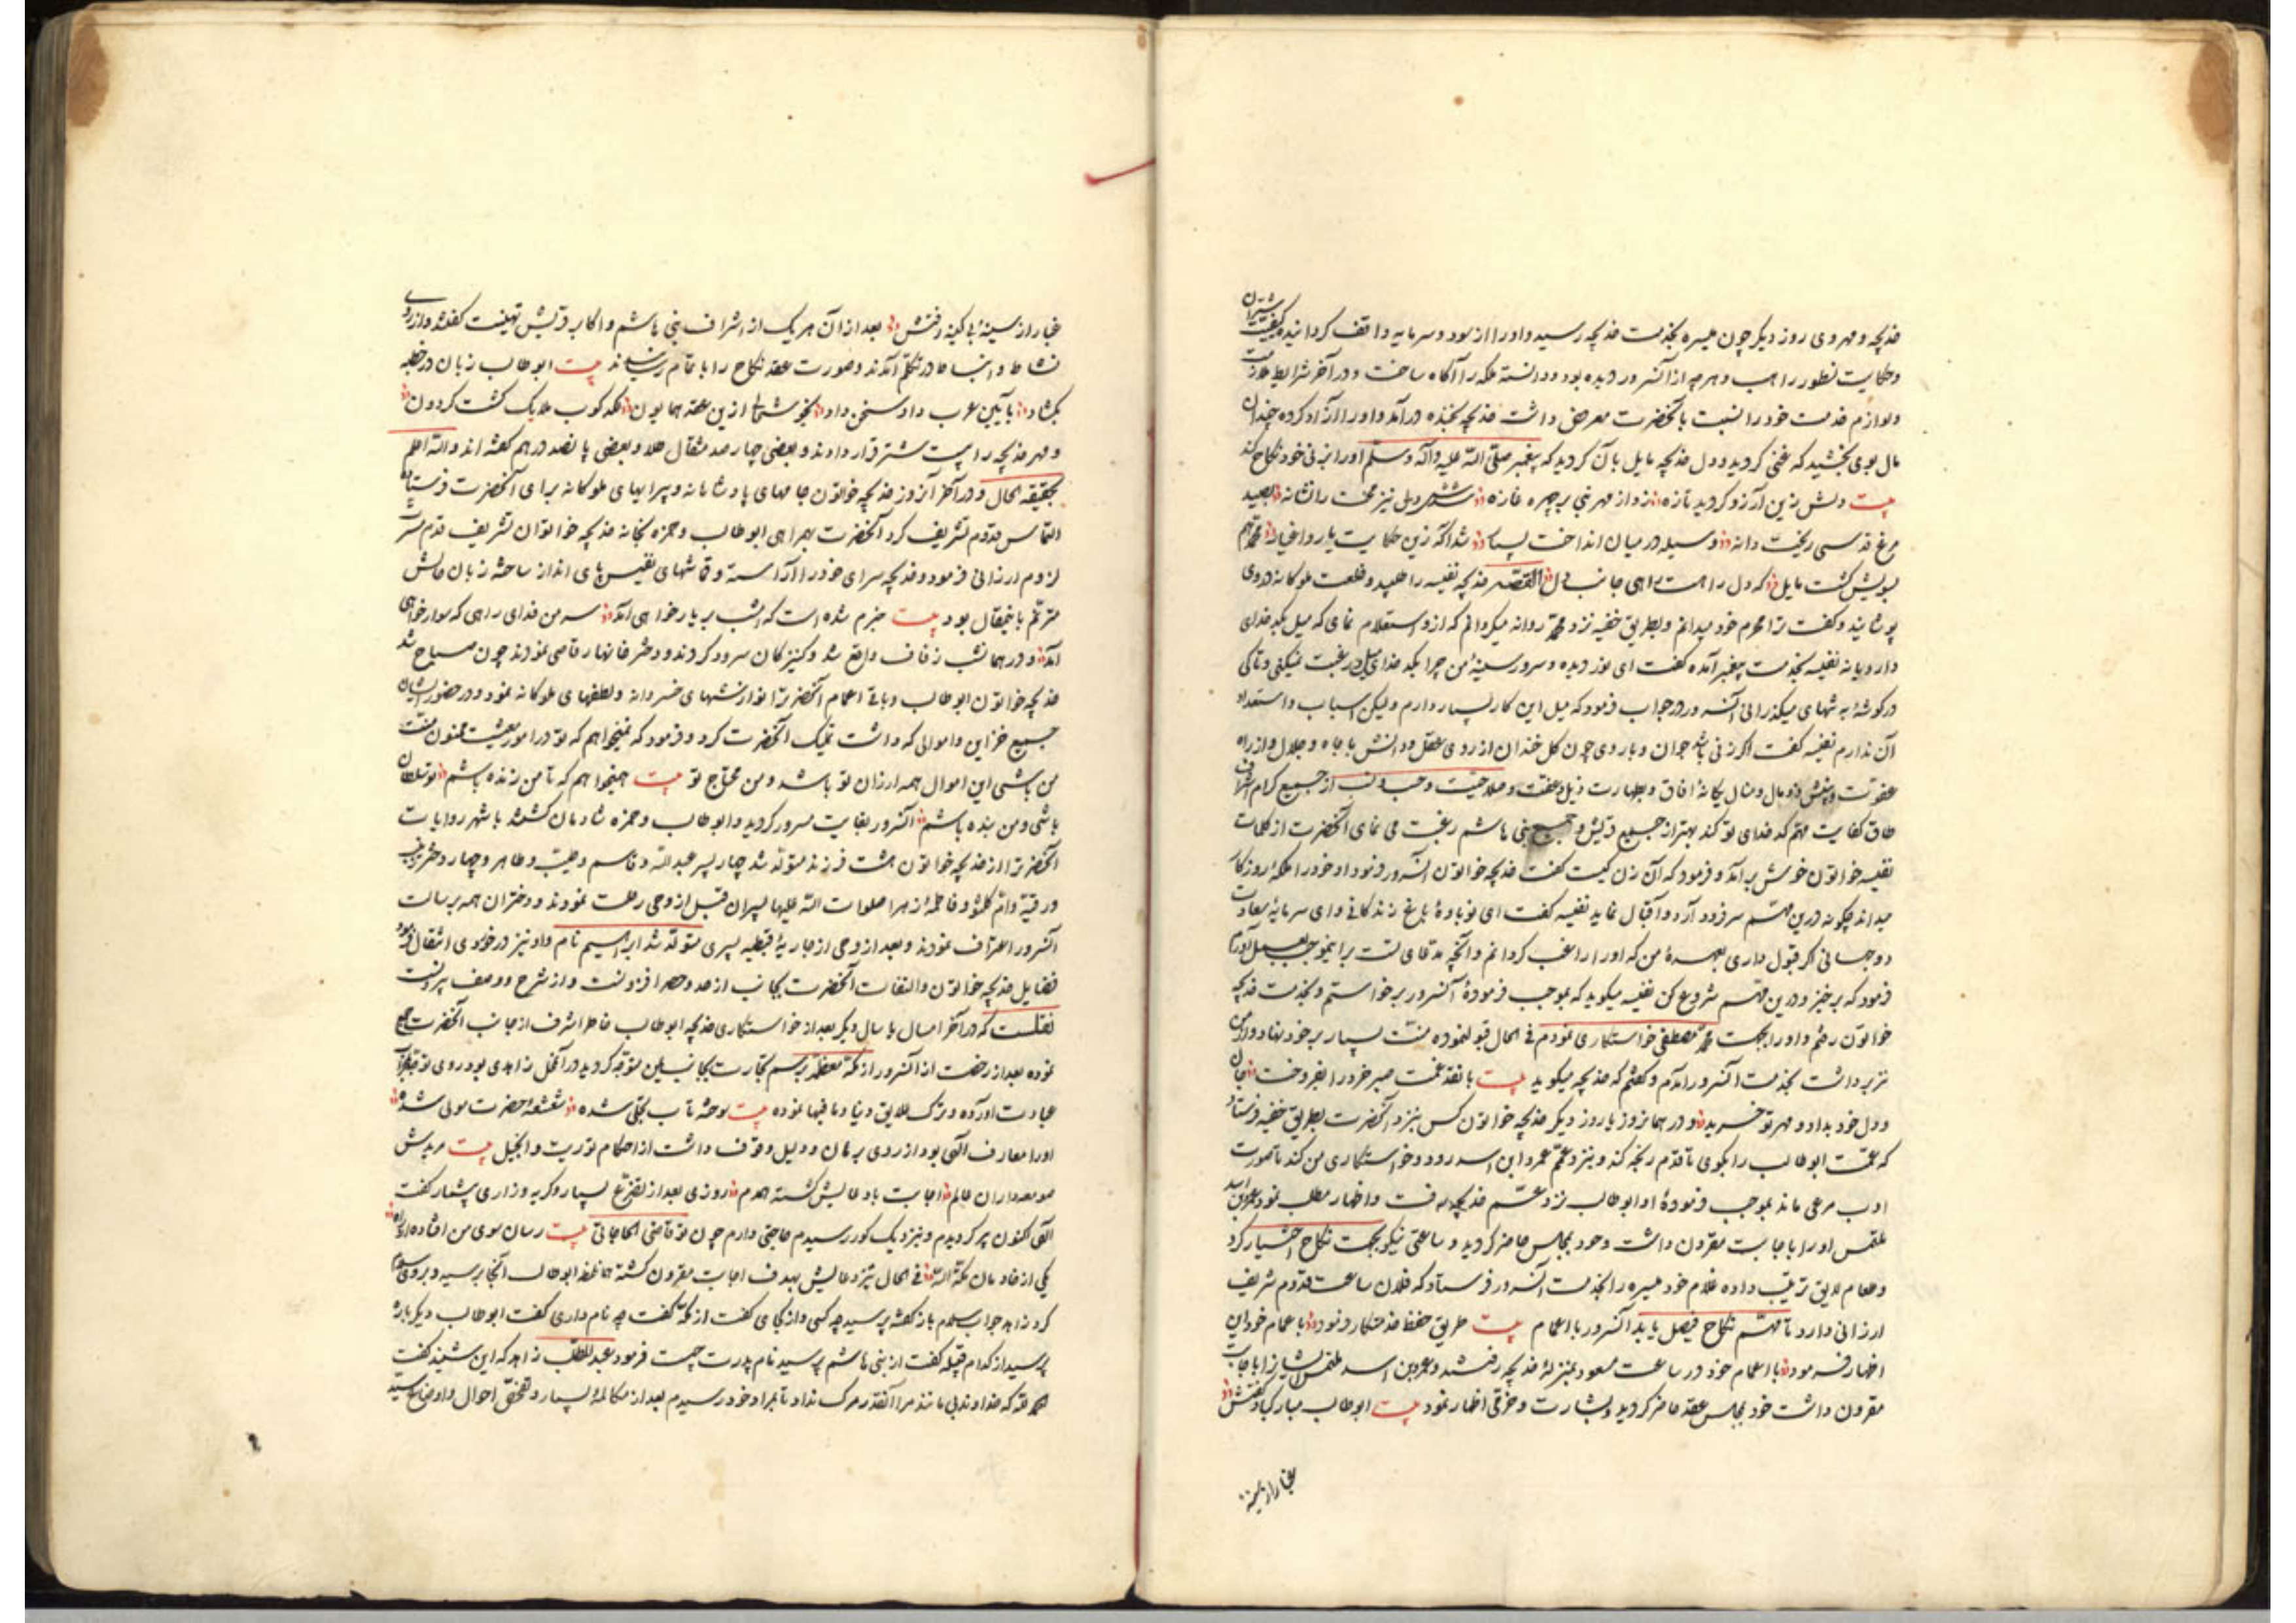 خدیجه و مهروی روز دیگر چون میسره بخدمت خدیجه رسید و او را از سود و سرمایه واقف گردانیده کیفیت
و حکایت نسطور راهب و هرچه از آنسرور دیده بود و دانسته ملکه را آگاه ساخت و در آخر شرایط ملازمت
و لوازم خدمت خود را نسبت بآنحضرت معروض داشت خدیجه بخنده درآمد و او را آزاد کرده چندان
مال بوی بخشید که غنی گردید و دل خدیجه مایل بآن گردید که پیغمبر صلی الله علیه و آله و سلم او را بزنی خود نکاح کند
بیت دلش زین آرزو گردید تازه زد از مهر نبی بر چهره غازه نیز محبت را نشانه بصید
مرغ قدسی ریخت دانه وسیله در میان انداخت بسیار شد آگه زین حکایت یار و اغیار محمد هم
بسویش گشت مایل که دل را هست راهی جانب دل القصه خدیجه نفیسه را طلبید و خلعت ملوکانه در وی
پوشانید و گفت ترا محرم خود میدانم و بطریق خفیه نزد محمد روانه میگردانم که ازو استعلام نمای که میل بکدخدای
دارد یا نه نفیسه بخدمت پیغمبر آمده گفت ای نور دیده و سرور سینهٔ من چرا بکدخدای میل و رغبت نمیکنی و تا کی
در گوشهٔ به تنهای میگذرانی آنسرور در جواب فرمود که میل این کار بسیار دارم ولیکن اسباب و استعداد
آن ندارم نفیسه گفت اگر زنی باشد جوان و با روی چون گل خندان از روی عقل و دانش با جاه و جلال و از راه
و مال و منال یگانهٔ آفاق و بطهارت ذیل و عفت و صلاحیت و حسب و نسب از جمیع کرام اشراف
طاق کفایت مهم کدخدای تو کند بهتر از جمیع قریش و جمیع بنی هاشم رغبت می نمای آنحضرت از کلمات
نفیسه خواتون خوش برآمد و فرمود که آن زن کیست گفت خدیجه خواتون آنسرور فرمود او خود را ملکهٔ روزگار
میداند چگونه درین مهم سر فرود آرد و اقبال نماید نفیسه گفت ای نوبادهٔ باغ زندگانی و ای سرمایهٔ سعادت
دوجهانی اگر قبول داری بعهدهٔ من که او را راغب گردانم و آنچه مدعای تست
فرمود که برخیز و درین مهم شروع کن نفیسه میگوید که بموجب فرمودهٔ آنسرور برخواستم و بخدمت خدیجه
خواتون رفتم و او را بجهت محمد مصطفی خواستگاری نمودم فی الحال قبول نموده منت بسیار بر خود نهاد
بخدمت آنسرور آمدم و گفتم که خدیجه میگوید بیت با نقد غمت صبر خود را بفروخت جان
و دل خود بداد و مهر تو خرید و در همانروز یا روز دیگر خدیجه خواتون کس بنزد آنحضرت بطریق خفیه فرستاد
که عمت ابوطالب را بگوی تا قدم رنجه کند و بنزد عمم عمرو ابن اسد رود و خواستگاری من کند تا صورت
ادب مرعی ماند بموجب فرمودهٔ او ابوطالب نزد عم خدیجه رفت و اظهار مطلب نمود عمرو ابن اسد
ملتمس او را باجابت مقرون داشت و خود بمجلس حاضر گردید و ساعتی نیکو بجهت نکاح اختیار کرد
و طعام لایق ترتیب داده غلام خود میسره را بخدمت آنسرور فرستاد که فلان ساعت قدوم شریف
ارزانی دارد تا مهم نکاح فیصل یابد آنسرور با اعمام بیت طریق حفظ خدمتکار فرمود با عمام خود این
اظهار فرمود با اعمام خود در ساعت مسعود بمنزلهٔ خدیجه رفتند و عمرو بن اسد ملتمس ایشانرا باجابت
مقرون داشت خود بمجلس عقد حاضر گردید و بشارت و خرمی اظهار نمود بیت ابوطالب مبارکباد گفتش
غبار از سینه
غبار از سینهٔ بی کینه رفتش بعد از آن هر یک از اشراف بنی هاشم و اکابر قریش تهنیت گفتند و از روی
نشاط و انبساط در تکلم آمدند و صورت عقد نکاح را باتمام رسانیدند بیت ابوطالب زبان در خطبه
بگشاد بآیین عرب داد سخن داد ازین عقد همایون ملک گشت گردون
و مهر خدیجه را بیست شتر قرار دادند و بعضی چارصد مثقال طلا و بعضی پانصد درهم گفته اند و الله اعلم
بحقیقه الحال و در آخر آنروز خدیجه خواتون جامهای پادشاهانه و پیرایهای ملوکانه برای آنحضرت فرستاده
التماس قدوم تشریف کرد آنحضرت بهمراهی ابوطالب و حمزه بخانهٔ خدیجه خواتون تشریف قدم مسرت
لزوم ارزانی فرمود و خدیجه سرای خود را آراسته و قماشهای نفیس پای انداز ساخته زبان حالش
مترنم باینمقال بود بیت خبرم شده است که امشب بر یار خواهی آمد سر من فدای راهی که سوار خواهی
آمد و در همانشب زفاف واقع شد و کنیزکان سرود کردند و دختر خانها رقاصی نمودند چون صباح شد
خدیجه خواتون ابوطالب و باقی اعمام آنحضرترا نوازشهای خسروانه و لطفهای ملوکانه نمود و در حضور ایشان
جمیع خزاین و اموالی که داشت تملیک آنحضرت کرد و فرمود که نمیخواهم که تو در امور معیشت ممنون منت
من باشی این اموال همه ارزان تو باشد و من محتاج تو بیت همیخواهم که تا من زنده باشم تو سلطان
باشی و من بنده باشم آنسرور بغایت مسرور گردید و ابوطالب و حمزه شادمان گشتند باشهر روایات
آنحضرترا از خدیجه خواتون هشت فرزند متولد شد چار پسر عبدالله و قاسم و طیب و طاهر و چهار دختر زینب
و رقیة و ام کلثوم و فاطمهٔ زهرا صلوات الله علیها پسران قبل از وحی رحلت نمودند و دختران همه برسالت
آنسرور اعتراف نمودند و بعد از وحی از جاریهٔ قبطیه پسری متولد شد ابراهیم نام و او نیز در خوردی انتقال فرمود
فضایل خدیجه خواتون و التفات آنحضرت بجانب از حد و حصر افزونست و از شرح و وصف بیرونست
نقلست که در آخر امسال یا سال دیگر بعد از خواستگاری خدیجه ابوطالب خاطر اشرف از جانب آنحضرت جمع
نموده بعد از رخصت از آنسرور از مکهٔ معظمه برسم تجارت بجانب یمن متوجه گردید در آنمحل زاهدی بود روی توجه
عبادت آورده و ترک علایق دنیا و مافیها نموده بیت
او را معارف الهی بود از روی برهان و دلیل وقوف داشت از احکام توریت و انجیل بیت مریدش
صومعه داران عالم اجابت با دعایش گشته همدم روزی بعد از تضرع بسیار و گریه و زاری بیشمار گفت
الهی اکنون پیر گردیدم و بنزدیک گور رسیدم حاجتی دارم چون تو قاضی الحاجاتی بیت رسان سوی من افتاده
یکی از خادمان مکة الله فی الحال تیر دعایش بهدف اجابت مقرون گشته همانلحظه ابوطالب آنجا رسید و بر وی سلام
کرد زاهد جواب سلام باز گفته پرسید چه کسی و از کجای گفت از مکه گفت چه نام داری گفت ابوطالب دیگر باره
پرسید از کدام قبیله گفت از بنی هاشم پرسید نام پدرت چیست فرمود عبدالمطلب زاهد که این شنید گفت
الحمد لله که خداوند بی مانند مرا آنقدر مرگ نداد تا بمراد خود رسیدم بعد از مکالمهٔ بسیار و تفحص احوال و اوضاع سید